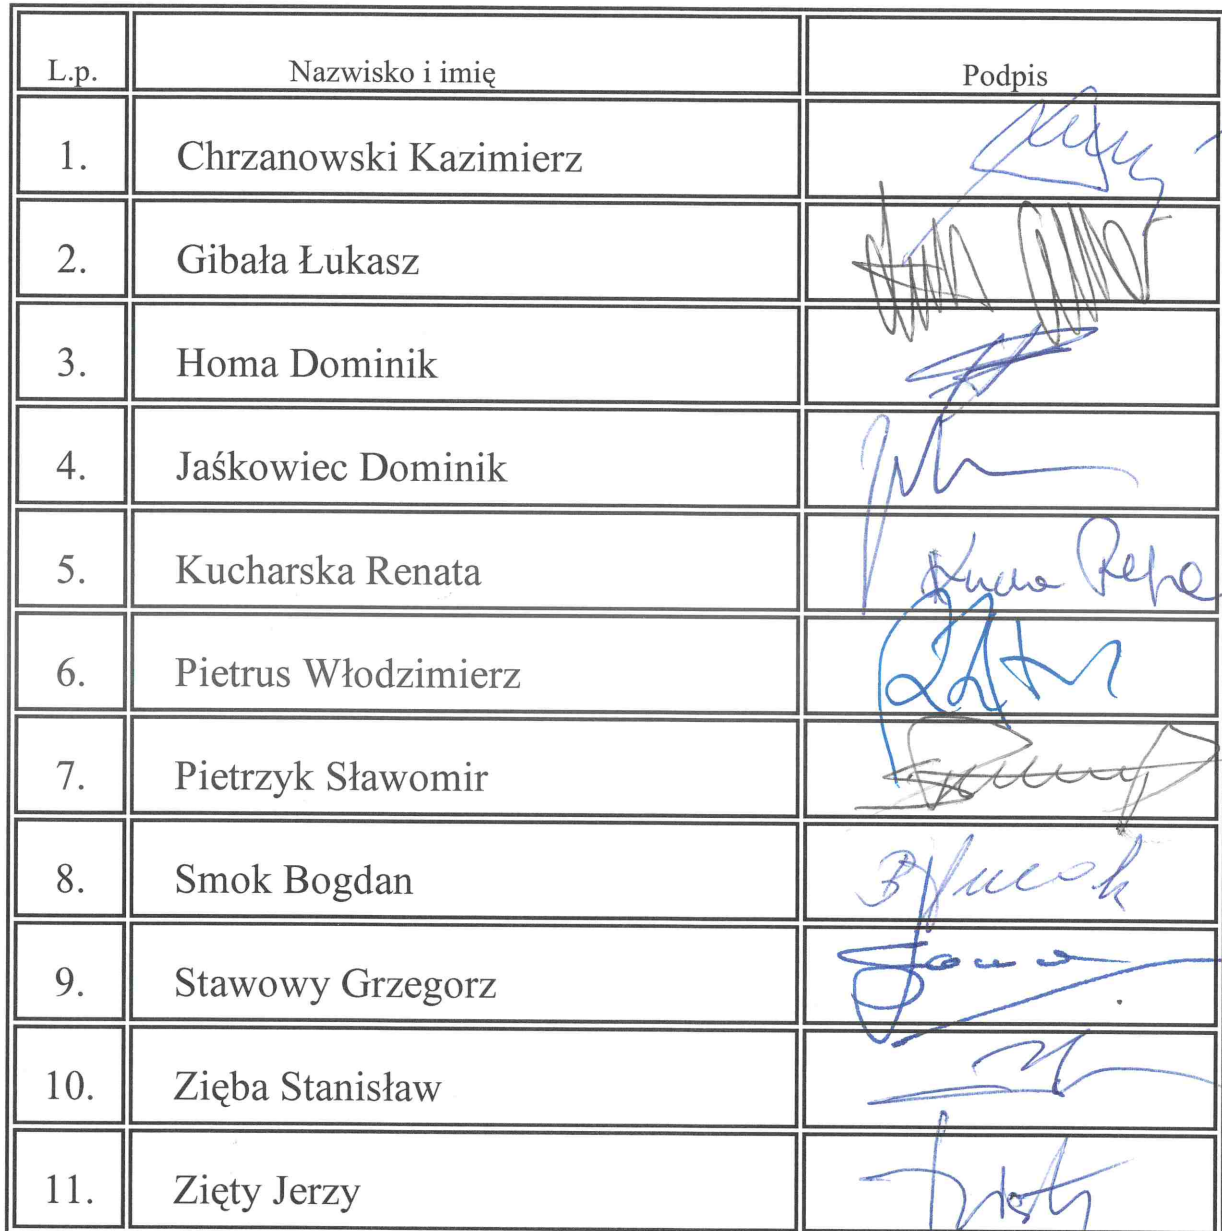 L.p. Nazwisko i imię Podpis
1. Chrzanowski Kazimierz
2. Gibała Łukasz
3. Homa Dominik
4. Jaśkowiec Dominik
5. Kucharska Renata
6. Pietrus Włodzimierz
7. Pietrzyk Sławomir
8. Smok Bogdan B Smok
9. Stawowy Grzegorz
10. Zięba Stanisław
11. Zięty Jerzy